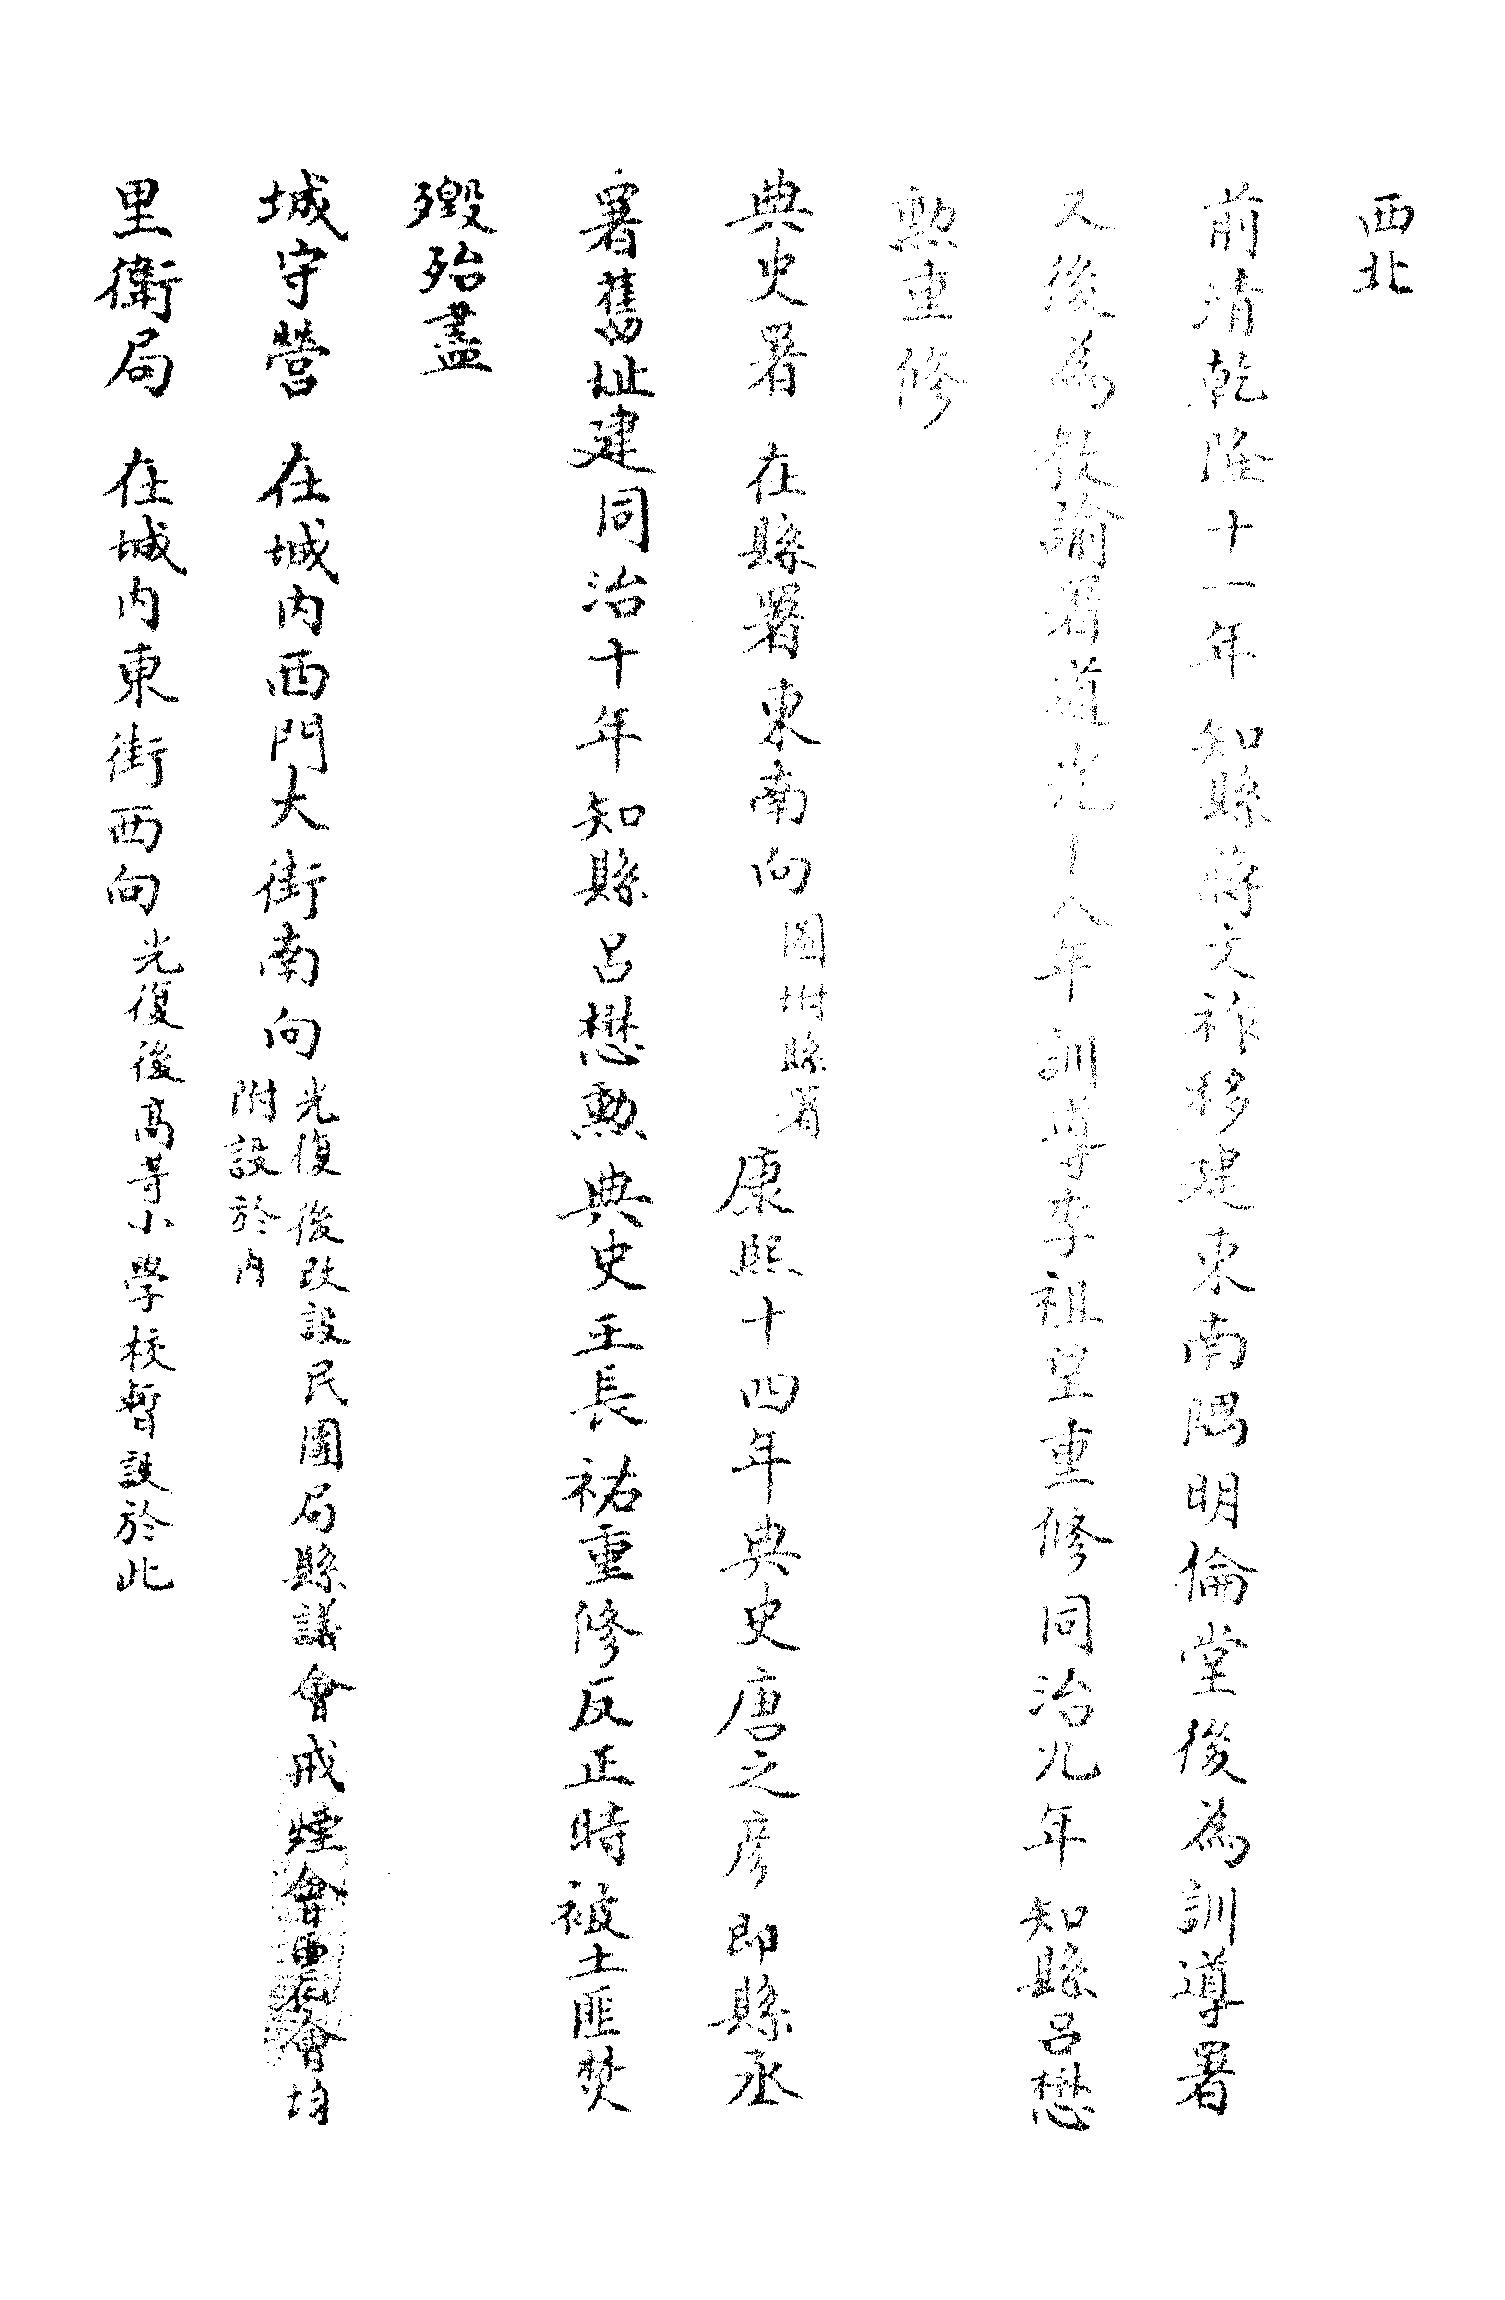 西北
前清乾隆十一年知縣蔣文祚移建東南隅明倫堂後為訓導署
又後為教諭署道光十八年訓導李祖望重修同治九年知縣呂懋
勲重修
典史署 在縣署東南向圖坿縣署康熙十四年典史唐之彦即縣丞
署舊址建同治十年知縣呂懋勲典史王長祐重修反正時被土匪焚
燬殆盡
城守營 在城內西門大街南向光復後改設民團局縣議會戒煙會農會均
附設於內
里衛局 在城內東街西向光復後高等小學校暫設於此